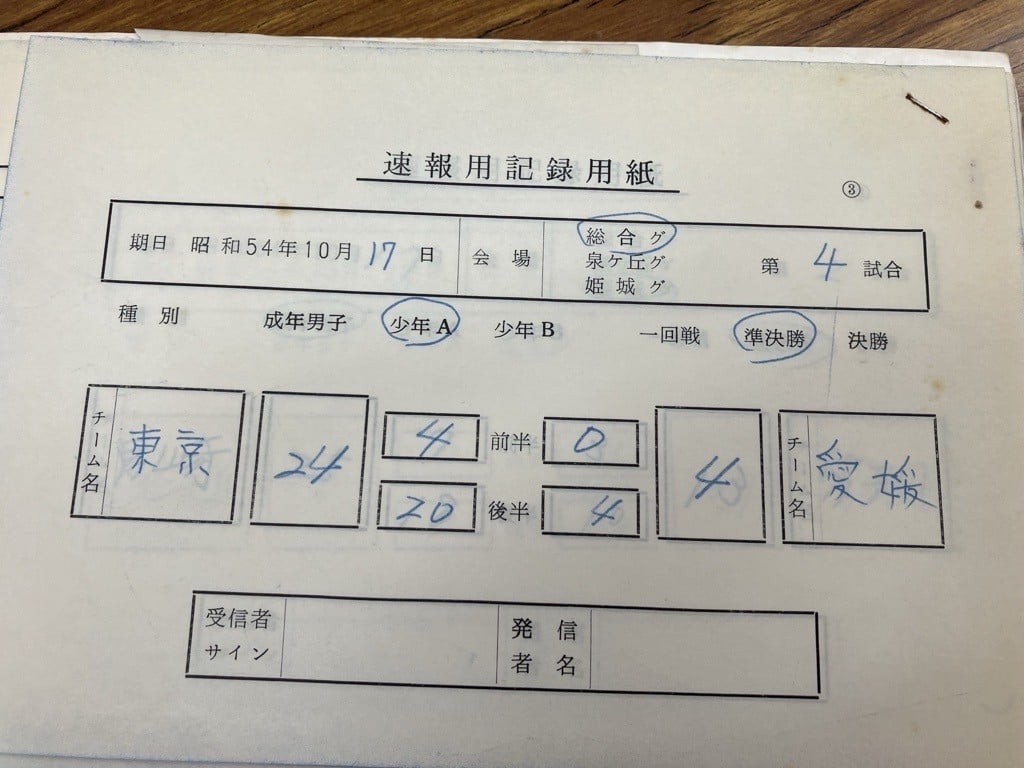 速報用記録用紙
③
期日 昭和54年10月17日 会場 総合グ 第4試合
泉ケ丘グ
姫城グ
種別 成年男子 少年A 少年B 一回戦 準決勝 決勝
チーム名 東京 24 4 前半 0 4 チーム名 愛媛
20 後半 4
受信者サイン 発信者名